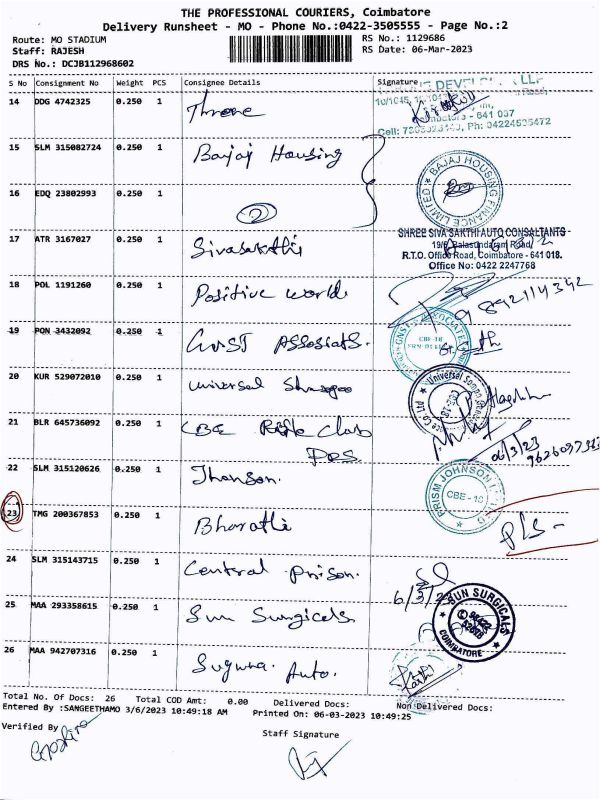 THE PROFESSIONAL COURIERS, Coimbatore
Delivery Runsheet - MO - Phone No.:0422-3505555 - Page No.:2
Route: MO STADIUM
RS No.: 1129686
Staff: RAJESH
RS Date: 06-Mar-2023
DRS No.: DCJB112968602
S No Consignment No Weight PCS Consignee Details Signature
14 DDG 4742325 0.250 1 Throne
Cell: Ph: 04224505472
15 SLM 315082724 0.250 1 Bajaj Housing
BAJAJ HOUSING FINANCE LIMITED
16 EDQ 23802993 0.250 1
2
17 ATR 3167027 0.250 1 Sivasakthi
SHREE SIVA SAKTHI AUTO CONSALTANTS
19/6, Balasundaram Road,
R.T.O. Office Road, Coimbatore - 641 018.
Office No: 0422 2247768
18 POL 1191260 0.250 1 Positive world
9892114342
19 PON 3432092 0.250 1 GNST Associats.
CBE-18
20 KUR 529072010 0.250 1 Universal
21 BLR 645736092 0.250 1 CBE Rifle Club
06/3/23
22 SLM 315120626 0.250 1 Jhonson.
PRISM JOHNSON
CBE - 18
23 TMG 200367853 0.250 1 Bharathi
24 SLM 315143715 0.250 1 Central Prison.
25 MAA 293358615 0.250 1 Sun Surgicals
SUN SURGICALS
COIMBATORE
26 MAA 942707316 0.250 1 Suguna Auto.
Total No. Of Docs: 26 Total COD Amt: 0.00 Delivered Docs: Non Delivered Docs:
Entered By :SANGEETHAMO 3/6/2023 10:49:18 AM Printed On: 06-03-2023 10:49:25
Verified By
Staff Signature